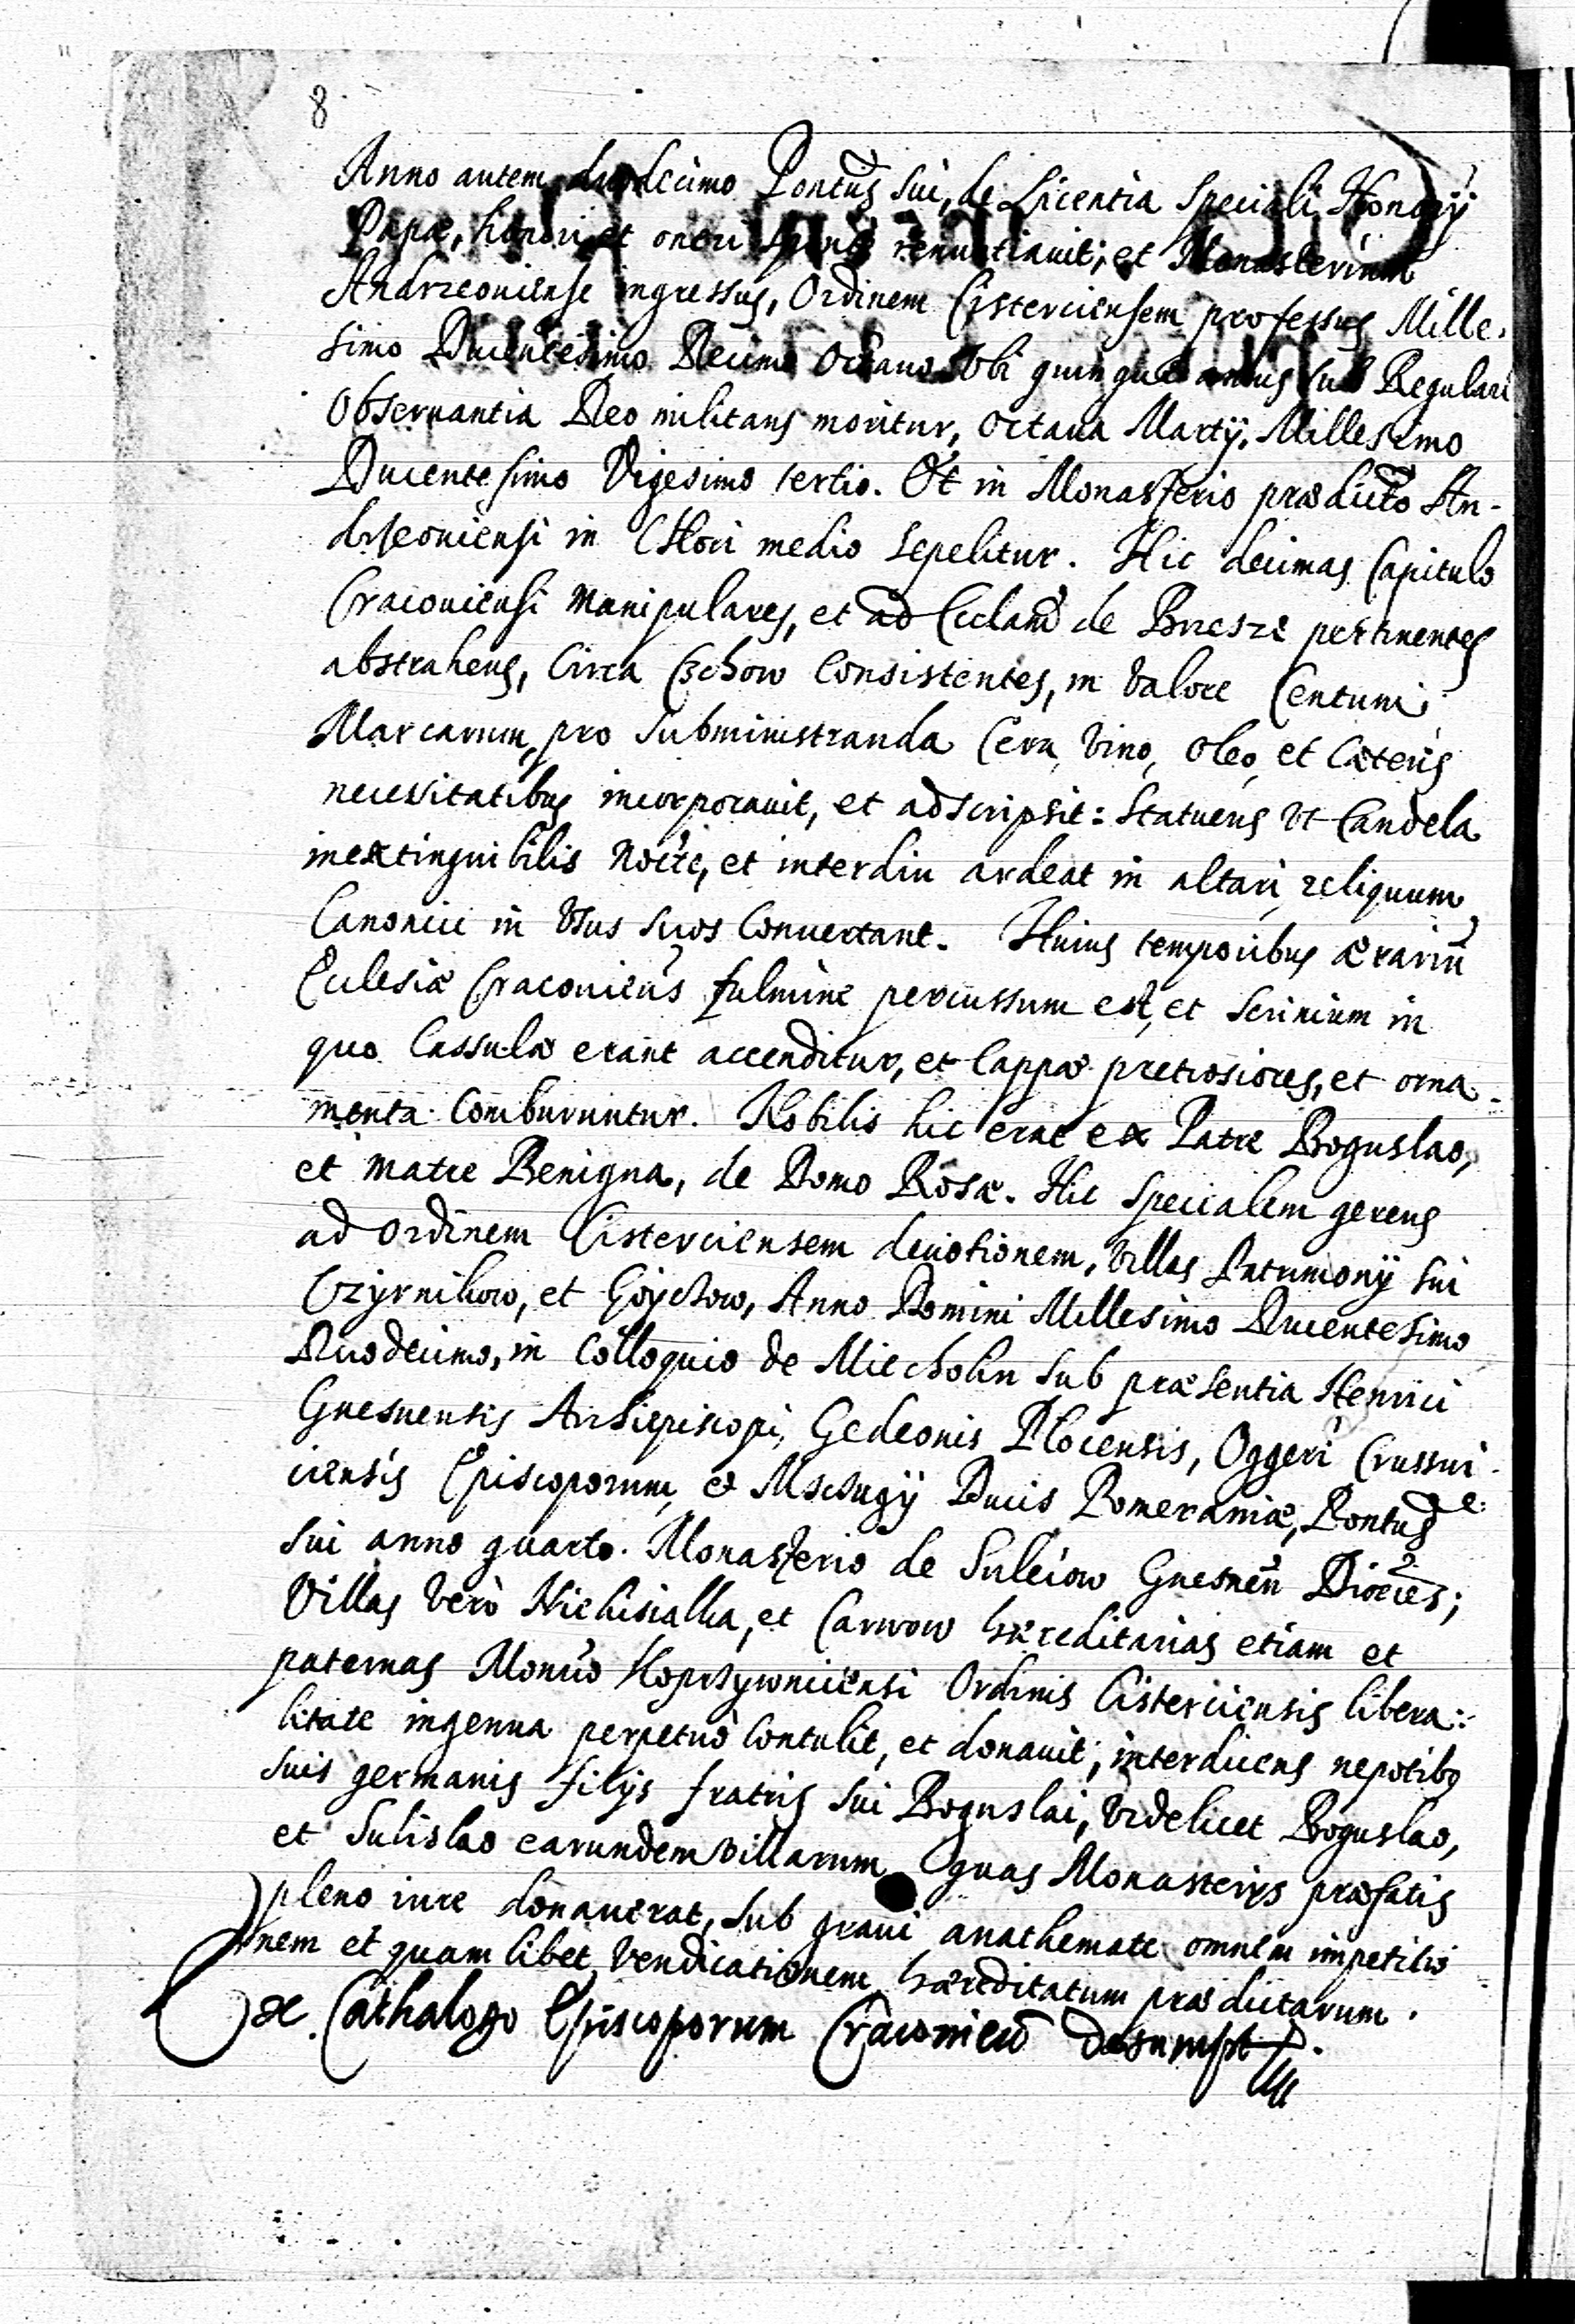 8
Anno autem duodecimo Pontūs sui, de Licentia Speciali Honorij
Papæ, honori et oneri renuntiauit; et Monasterium
Andrzeouiense ingressus, Ordinem Cisterciensem professus Mille-
simo Ducentesimo Decimo Octauo Vbi quinque annus sub Regulari
Obseruantia Deo militans moritur, octaua Martij, Millesimo
Ducentesimo Vigesimo tertio. Et in Monasterio prædicto An-
drseouiensi in CHori medio sepelitur. Hic decimas Capitulo
Cracouiensi Manipulares, et ad Ecclam̄ de Brzesze pertinentes
abstrahens, Circa Czchow Consistentes, in Valore Centum
Marcarum, pro subministranda Cera, Vino, Oleo, et Cæteris
necessitatibus incorporauit, et adscripsit: Statuens Vt Candela
inextinguibilis Nocte, et interdiu ardeat in altari, reliquum
Canonici in Vsus suos Conuertant. Huius temporibus ærariū
Ecclesiæ Cracouieñs fulmine percussum est, et Scrinium in
quo Cassulæ erant accenditur, et Cappæ pretiosiores, et orna-
menta Comburuntur. Nobilis hic erat ex Patre Boguslao,
et Matre Benigna, de Domo Rosæ. Hic Specialem gerens
ad Ordinem Cisterciensem deuotionem, Villas Patrimonij sui
Czyrnikow, et Goychow, Anno Domini Millesimo Ducentesimo
Duodecimo, in Colloquio de Miecholin sub præsentia Henrici
Gnesnensis Archiepiscopi, Gedeonis Plocensis, Oggeri Crussui-
ciensis Episcoporum, et Mschugij Ducis Pomeraniæ, Pontūs
sui anno quarto. Monasterio de Suleiow Gnesneñ Dioeces;
Villas Verò Niekisialka, et Carwow hæreditarias etiam et
paternas Monrīo Koprzywniciensi Ordinis Cisterciensis libera-
litate ingenua perpetuò Contulit, et donauit; interdicens nepotibq
suis germanis filijs fratris sui Boguslai, Videlicet Boguslao,
et Sulislao earundem Villarum quas Monasterijs præfatis
pleno iure donauerat, sub graui anathemate omnem impetitio
nem et quam libet Vendicationem hæreditatum prædictarum.
Ex Cathalogo Episcoporum Cracouieñ desumpt